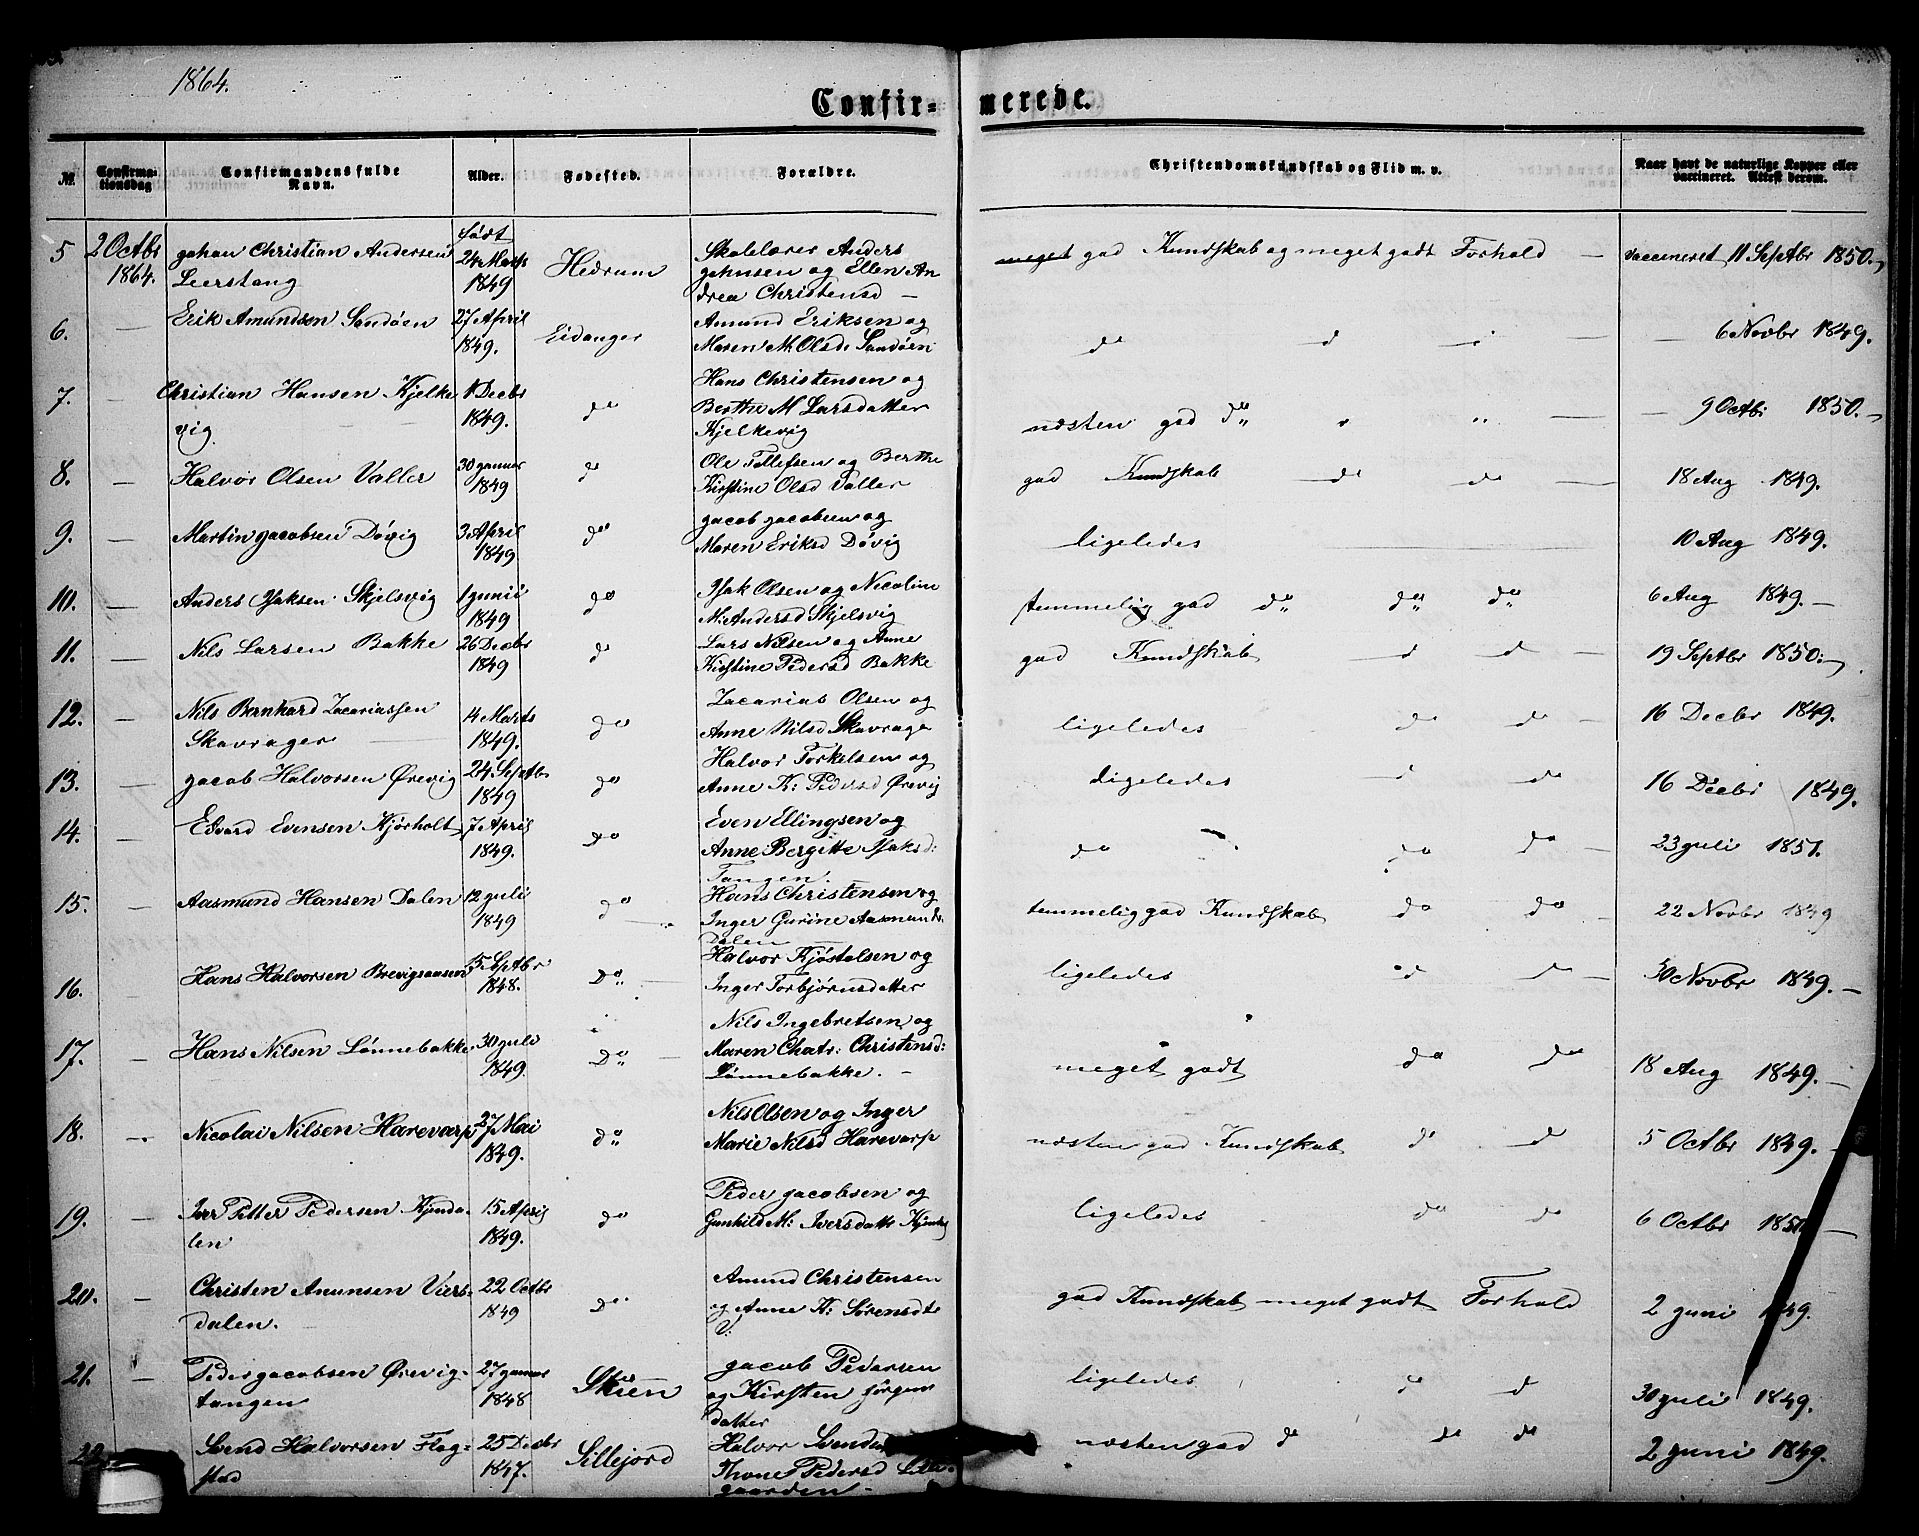 1864.
Confir- merede.
№ Confirmationsdag Confirmandens fulde Navn. Alder. Fødested. Forældre. Christendomskundskab og Flid m. v. Naar havt de naturlige Kopper eller vaccineret. Attest derom.
5 2 Octbr 1864. Johan Christian Andersen Leerstang født 24 Marts 1849 Hedrum Skolelærer Anders Johnsen og Ellen Andrea Christensd – god Kundskab og meget godt Forhold – vaccineret 11 Septbr 1850.
6. — Erik Amundsen Sandøen 27 April 1849. Eidanger Amund Eriksen og Maren M. Olsd. Sandøen do d — 6 Novbr 1849.
7. — Christian Hansen Kjelkevig 1 Decbr 1849. do Hans Christensen og Berthe M Larsdatter Kjelkevig næsten god do " " — 9 Octbr 1850.
8. — Halvor Olsen Valler 30 Januar 1849 do Ole Tollefsen og Berthe Kirstine Olsd Valler god Kundskab do do — 18 Aug 1849.
9. — Martin Jacobsen Døvig 3 April 1849 do Jacob Jacobsen og Maren Eriksd Døvig ligeledes — 10 Aug 1849.
10. — Anders Isaksen Skjelsvig 1 Junii 1849 do Isak Olsen og Nicoline M: Andersd Skjelsvig temmelig god do do do 6 Aug 1849. —
11. — Nils Larsen Bakke 26 Decbr 1849 do Lars Nilsen og Anne Kirstine Pedersd Bakke god Kundskab d d — 19 Septbr 1850.
12. — Nils Bernhard Zacariassen Skavrager 4 Marts 1849. do Zacarias Olsen og Anne Nilsd Skavrage ligeledes do do — 16 Decbr 1849.
13. — Jacob Halvorsen Ørevig 24 Septbr 1849 do Halvor Torkelsen og Anne K: Pedersd Ørevig ligeledes d do 16 Decbr 1849.
14. — Edvard Evensen Kjørholt 7 April 1849. do Even Ellingsen og Anne Bergitte Isaksd: Tangen. do do do 23 Juli 1851.
15. — Aasmund Hansen Dalen 12 Juli 1849 do Hans Christensen og Inger Gurine Aasmunds: Dalen temmelig god Kundskab do do — 22 Novbr 1849
16. — Hans Halvorsen Brevigsaasen 5 Septbr 1848. Do Halvor Kjøstolsen og Inger Torbjørnsdatter ligeledes d d — 30 Novbr 1849. —
17. — Hans Nilsen Lønnebakke 30 Juli 1849. Do Nils Ingebretsen og Maren Chatr: Christensd: Lønnebakke. – meget godt do do 18 Aug 1849. —
18. — Nicolai Nilsen Harevarp 27 Mai 1849. do Nils Olsen og Inger Marie Nilsd Harevarp næsten god Kundskab do d 5 Octbr 1849.
19. — Iver Petter Pedersen Kjendalen 15 April 1849. do Peder Jacobsen og Gunhild M: Iversdatt ligeledes do do 6 Octbr
20. — Christen Amunsen Versdalen. 22 Octbr 1849 Do Amund Christensen og Anne K: Sørensdt V: god Kundskab meget godt Forhold 2 Juni 1849.
21. — Peder Jacobsen Ørevigtangen 27 Januar 1848 Skien Jacob Pedersen og Kirsten Jørgensdatter ligeledes do d 30 Juli 1849.
22. Svend Halvorsen Flogstad 25 Decbr 1847. Sillejord Halvor Thone Pedersd næsten god d do do 2 Juni 1849.